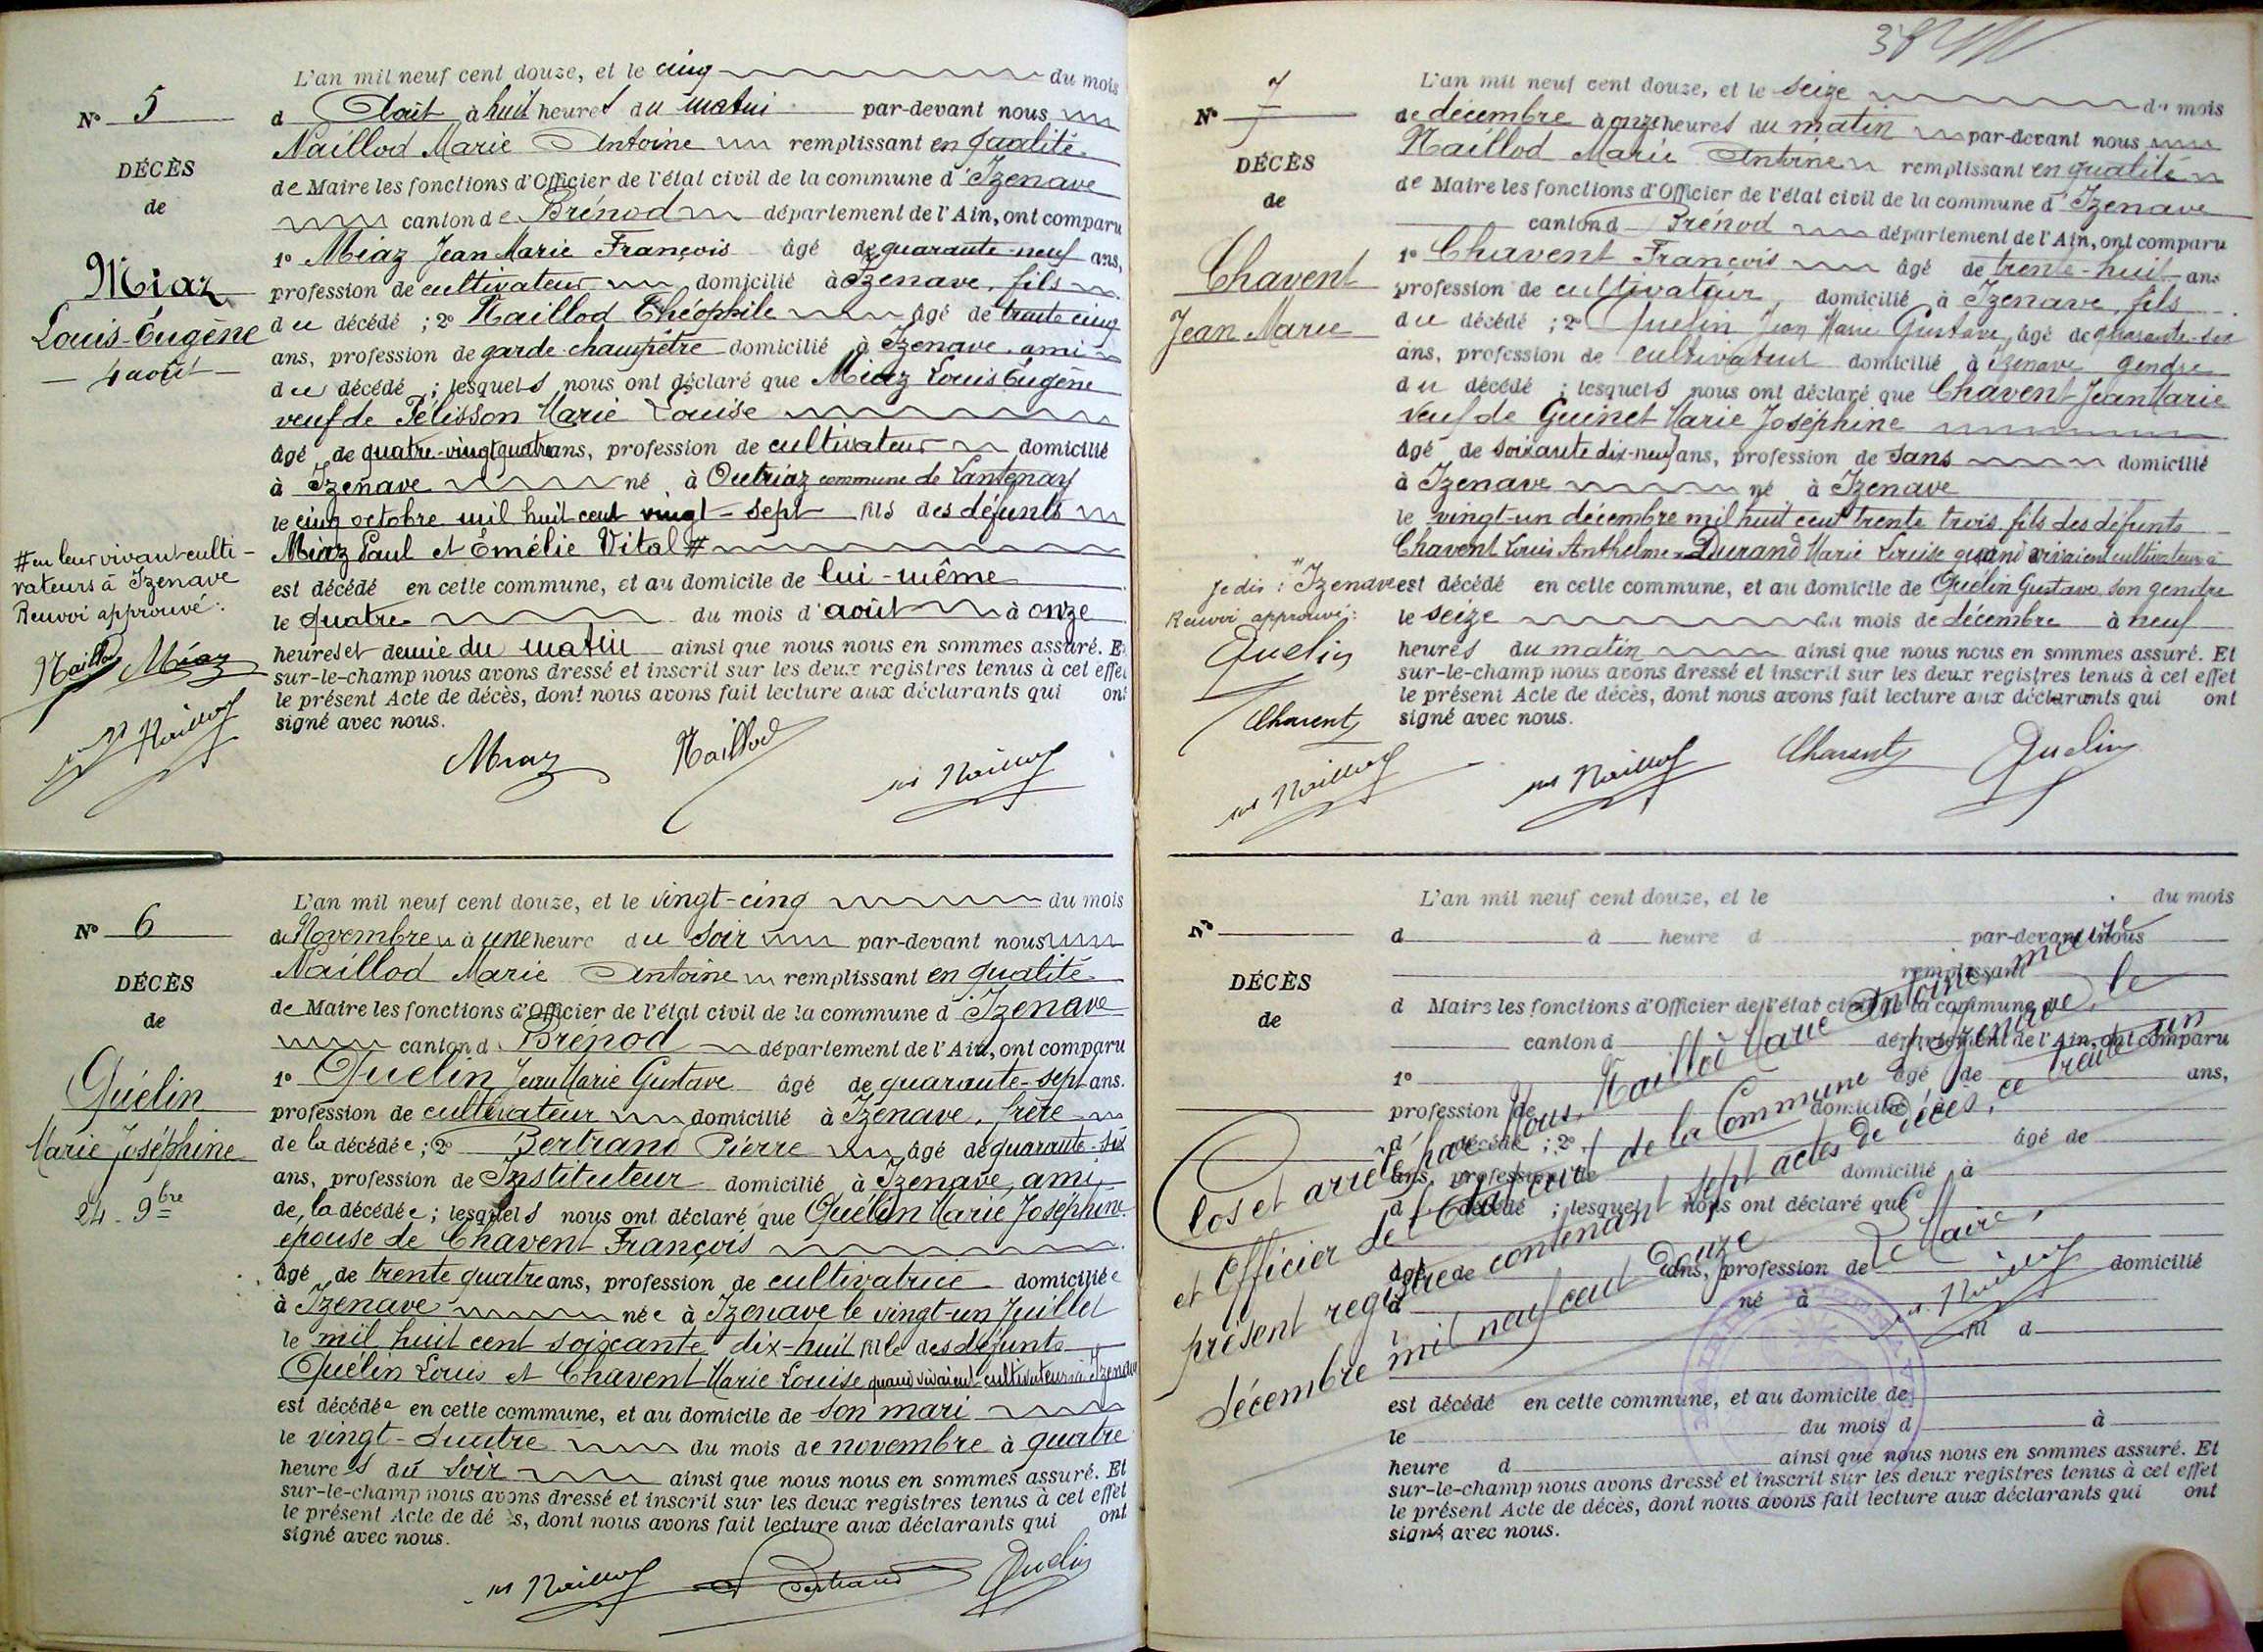 N° 5
DÉCÈS
de
Miaz
Louis-Eugène
4 août
# en leur vivant culti-
vateurs à Izenave
Renvoi approuvé :
Naillod Miaz
M Naillod
L'an mil neuf cent douze, et le cinq du mois
d Août à huit heures du matin par-devant nous
Naillod Marie Antoine remplissant en qualité
de Maire les fonctions d'Officier de l'état civil de la commune d'Izenave
canton de Brénod département de l'Ain, ont comparu
1° Miaz Jean Marie François âgé de quarante-neuf ans,
profession de cultivateur domicilié à Izenave, fils
du décédé ; 2° Naillod Théophile âgé de trente cinq
ans, profession de garde-champêtre domicilié à Izenave, ami
du décédé ; lesquels nous ont déclaré que Miaz Louis Eugène
veuf de Pélisson Marie Louise
âgé de quatre-vingt quatre ans, profession de cultivateur domicilié
à Izenave né à Outriaz commune de Lantenay
le cinq octobre mil huit cent vingt-sept fils des défunts
Miaz Paul et Emélie Vital #
est décédé en cette commune, et au domicile de lui-même
le quatre du mois d'août à onze
heures et demie du matin ainsi que nous nous en sommes assuré. E
sur-le-champ nous avons dressé et inscrit sur les deux registres tenus à cet effet
le présent Acte de décès, dont nous avons fait lecture aux déclarants qui ont
signé avec nous.
Miaz Naillod M Naillod
N° 6
DÉCÈS
de
Quélin
Marie Joséphine
24 - 9bre
L'an mil neuf cent douze, et le vingt-cinq du mois
de Novembre à une heure du soir par-devant nous
Naillod Marie Antoine remplissant en qualité
de Maire les fonctions d'Officier de l'état civil de la commune d'Izenave
canton d Brénod département de l'Ain, ont comparu
1° Quélin Jean Marie Gustave âgé de quarante-sept ans.
profession de cultivateur domicilié à Izenave, frère
de la décédée ; 2° Bertrand Pierre âgé de quarante-six
ans, profession de Instituteur domicilié à Izenave, ami
de la décédée ; lesquels nous ont déclaré que Quélin Marie Joséphine
épouse de Chavent François
âgé de trente quatre ans, profession de cultivatrice domiciliée
à Izenave née à Izenave le vingt-un Juillet
le mil huit cent soixante dix-huit fille des défunts
Quélin Louis et Chavent Marie Louise quand vivaient cultivateurs à Izenave
est décédée en cette commune, et au domicile de son mari
le vingt-quatre du mois de novembre à quatre
heures du soir ainsi que nous nous en sommes assuré. Et
sur-le-champ nous avons dressé et inscrit sur les deux registres tenus à cet effet
le présent Acte de dé s, dont nous avons fait lecture aux déclarants qui ont
signé avec nous.
M Naillod Bertrand Quelin
38
N° 7
DÉCÈS
de
Chavent
Jean Marie
Je dis : "Izenave
Renvoi approuvé :
Quelin
Chavent
M Naillod
L'an mil neuf cent douze, et le seize du mois
de décembre à onze heures du matin par-devant nous
Naillod Marie Antoine remplissant en qualité
de Maire les fonctions d'Officier de l'état civil de la commune d'Izenave
canton d Brénod département de l'Ain, ont comparu
1° Chavent François âgé de trente-huit ans
profession de cultivateur, domicilié à Izenave, fils
du décédé ; 2° Quelin Jean Marie Gustave, âgé de quarante-six
ans, profession de cultivateur domicilié à Izenave gendre
du décédé ; lesquels nous ont déclaré que Chavent Jean Marie
veuf de Guinet Marie Joséphine
âgé de soixante dix-neuf ans, profession de sans domicilié
à Izenave né à Izenave
le vingt-un décembre mil huit cent trente trois fils des défunts
Chavent Louis Anthelme Durand Marie Louise quand vivaient cultivateurs à
est décédé en cette commune, et au domicile de Quelin Gustave, son gendre
le seize du mois de décembre à neuf
heures du matin ainsi que nous nous en sommes assuré. Et
sur-le-champ nous avons dressé et inscrit sur les deux registres tenus à cet effet
le présent Acte de décès, dont nous avons fait lecture aux déclarants qui ont
signé avec nous.
M Naillod Chavent Quelin
N°
DÉCÈS
de
L'an mil neuf cent douze, et le du mois
d à heure d par-devant nous
remplissant
d Maire les fonctions d'Officier de l'état civil de la commune d
canton d département de l'Ain, ont comparu
1° âgé de ans,
profession de domicilié à
d décédé ; 2° âgé de
ans, profession de domicilié à
d décédé ; lesquel nous ont déclaré que
âgé de ans, profession de domicilié
à né à
l fil d
est décédé en cette commune, et au domicile de
le du mois d à
heure d ainsi que nous nous en sommes assuré. Et
sur-le-champ nous avons dressé et inscrit sur les deux registres tenus à cet effet
le présent Acte de décès, dont nous avons fait lecture aux déclarants qui ont
signé avec nous.
Clos et arrêté par Nous, Naillod Marie Antoine, maire
et Officier de l'Etat civil de la Commune d'Izenave, le
présent registre contenant sept actes de décès, ce trente un
décembre mil neuf cent douze
Le Maire,
M Naillod